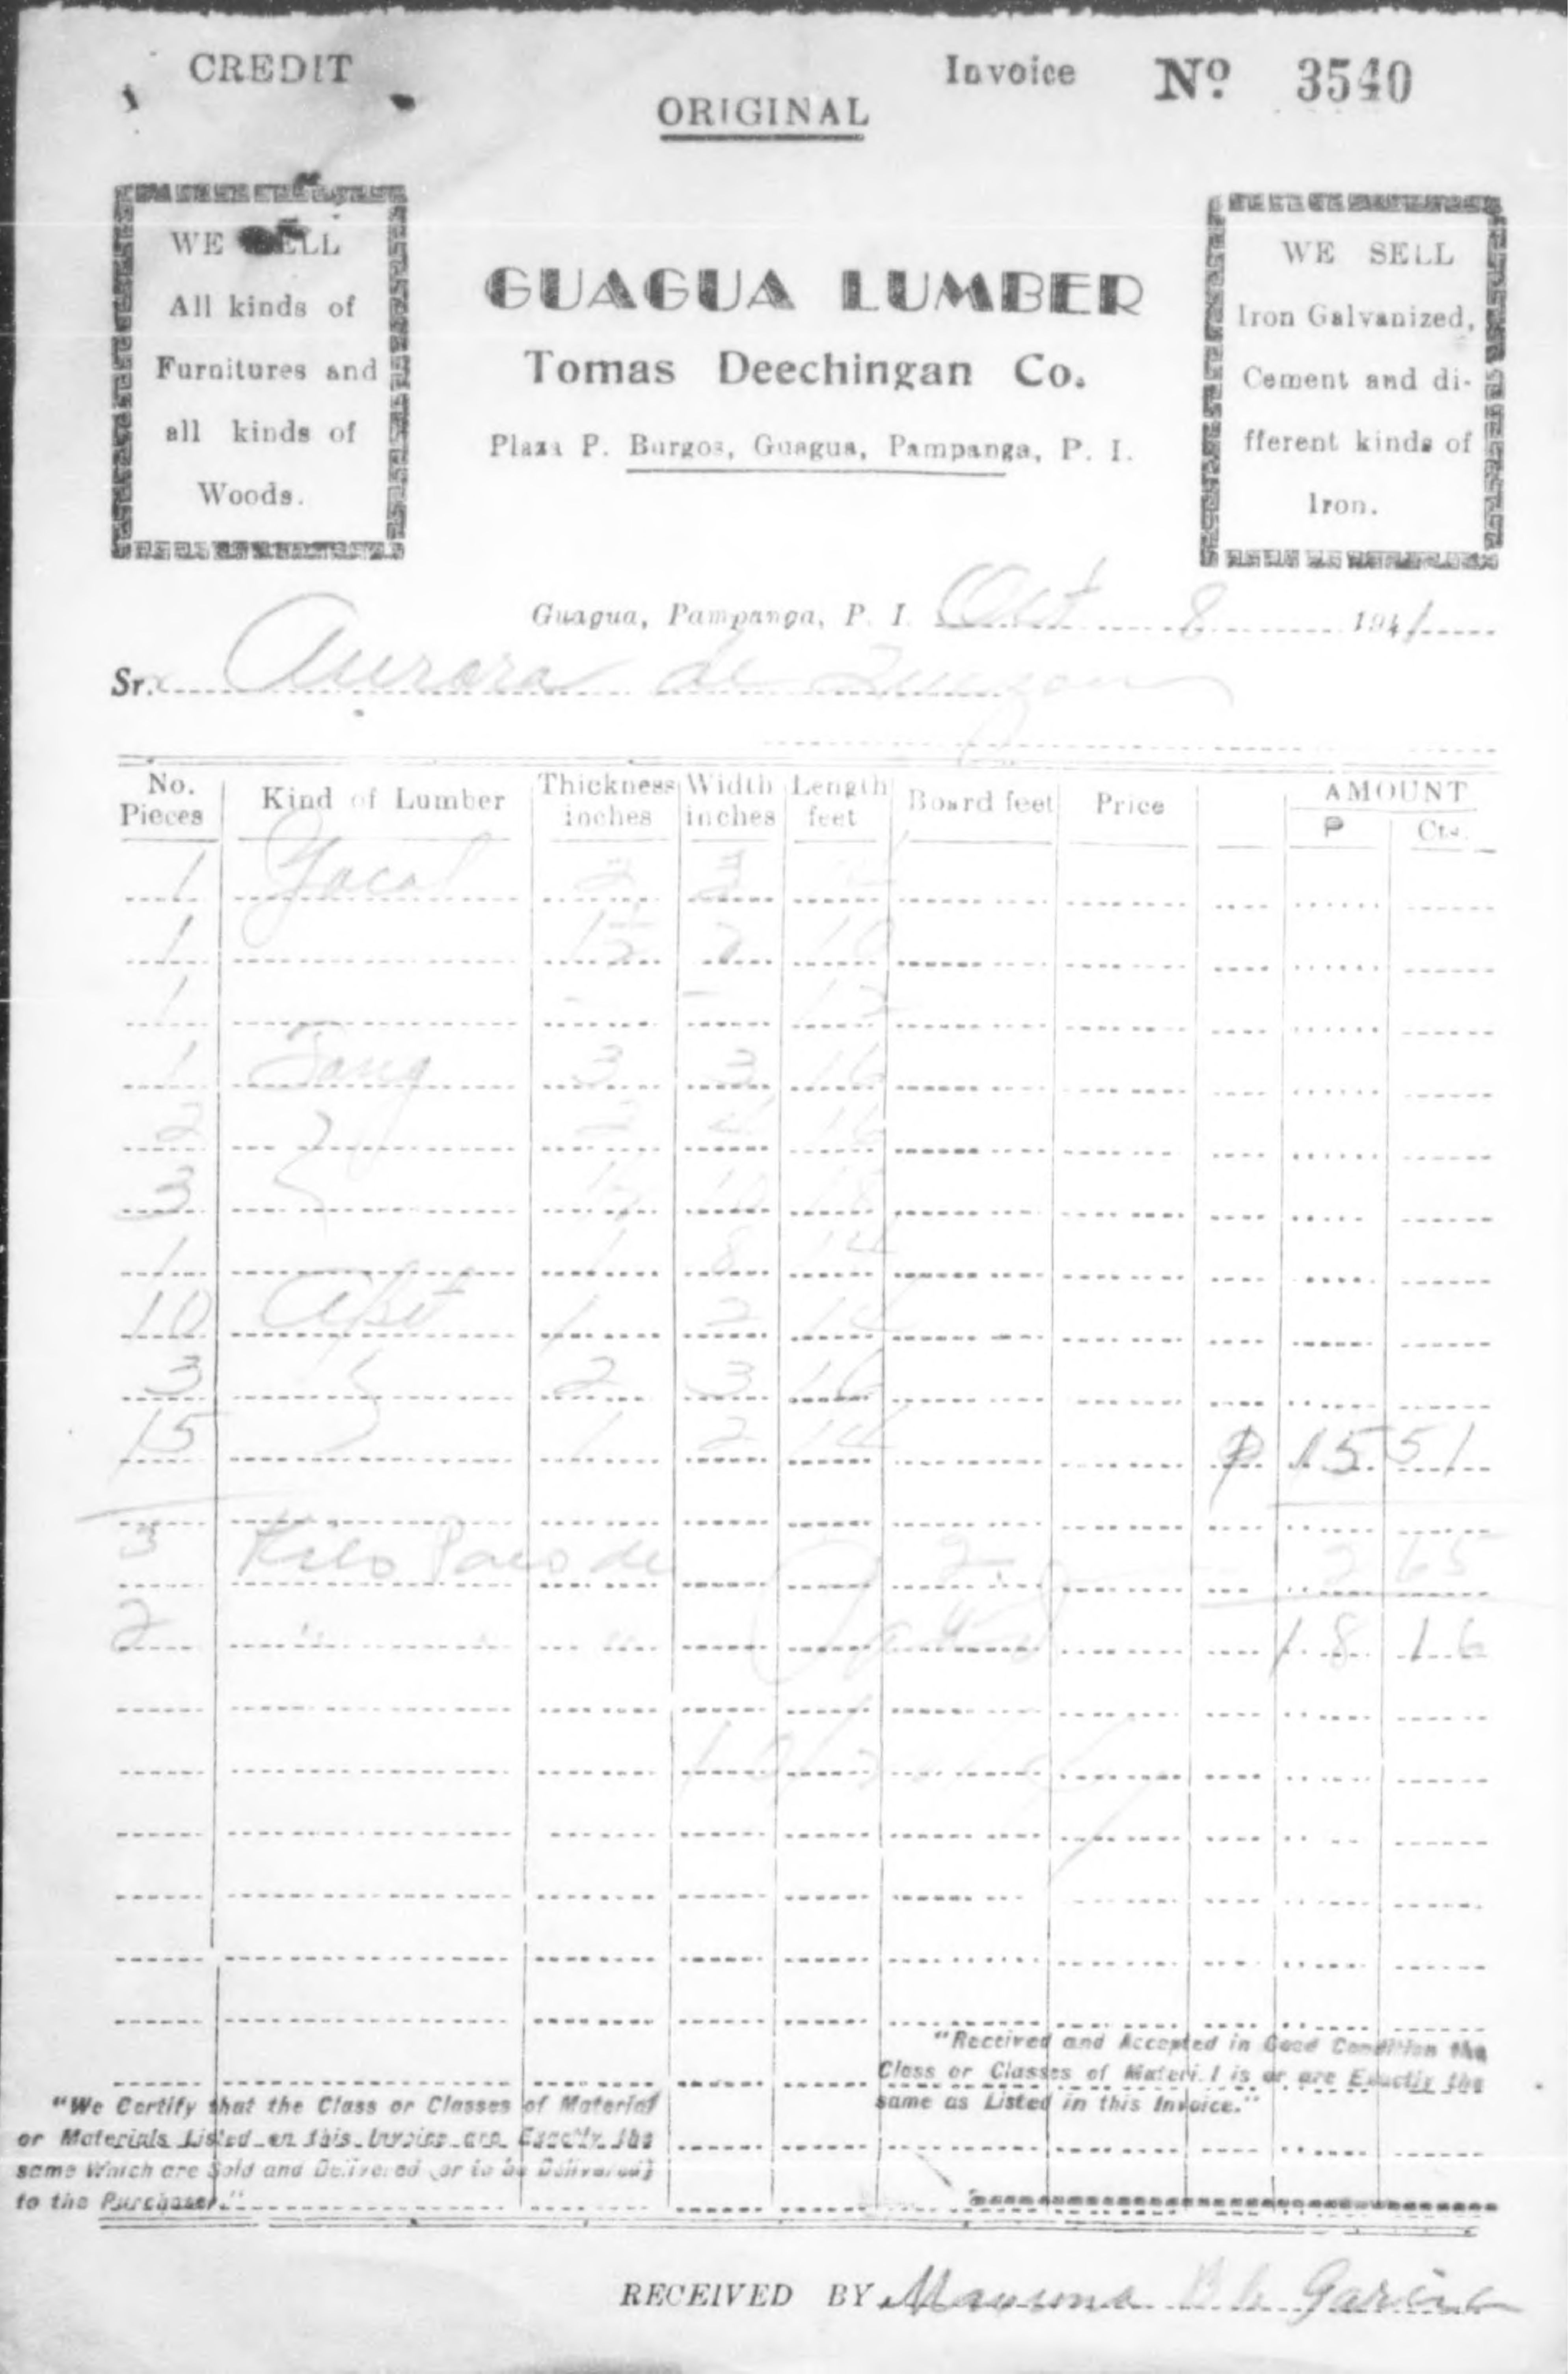 CREDIT
Invoice Nº 3540
ORIGINAL
WE SELL
All kinds of
Furnitures and
all kinds of
Woods.
GUAGUA LUMBER
Tomas Deechingan Co.
Plaza P. Burgos, Guagua, Pampanga, P. I.
WE SELL
Iron Galvanized,
Cement and di-
fferent kinds of
Iron.
Guagua, Pampanga, P. I. Oct 8 1941
Sr. Aurora de Quezon
No. Pieces Kind of Lumber Thickness inches Width inches Length feet Board feet Price AMOUNT
₱ Cts.
1 Yacal 2 3
1 1½ 2 10
1 12
1 Tang 3 3 16
2 2 4 16
3 18
1 1 8 14
10 Apit 1 2 14
3 2 3 16
15 1 2 14 ₱ 15 51
3 Kilo de 2 65
2 " " " 18 16
"Received and Accepted in Good Condition the
Class or Classes of Material is or are Exactly the
same as Listed in this Invoice."
"We Certify that the Class or Classes of Material
or Materials Listed on this Invoice are Exactly the
same Which are Sold and Delivered (or to be Delivered)
to the Purchaser."
RECEIVED BY Garcia